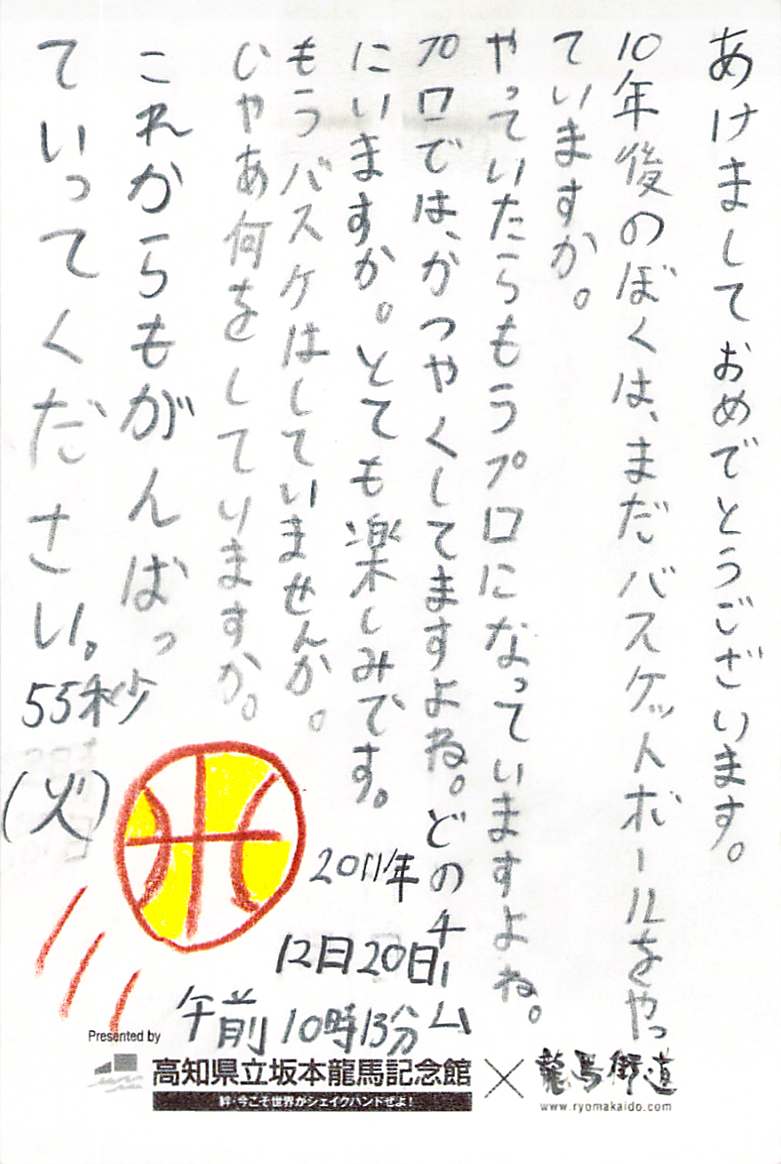 あけましておめでとうございます。
10年後のぼくは、まだバスケットボールをやっ
ていますか。
やっていたらもうプロになっていますよね。
プロでは、かつやくしてますよね。どのチーム
にいますか。とても楽しみです。
もうバスケはしていませんか。
じゃあ何をしていますか。
これからもがんばっ
ていってください。
2011年
12日20日
午前10時13分
55秒
(火)
Presented by
高知県立坂本龍馬記念館
絆・今こそ世界がシェイクハンドぜよ!
×
龍馬街道
www.ryomakaido.com